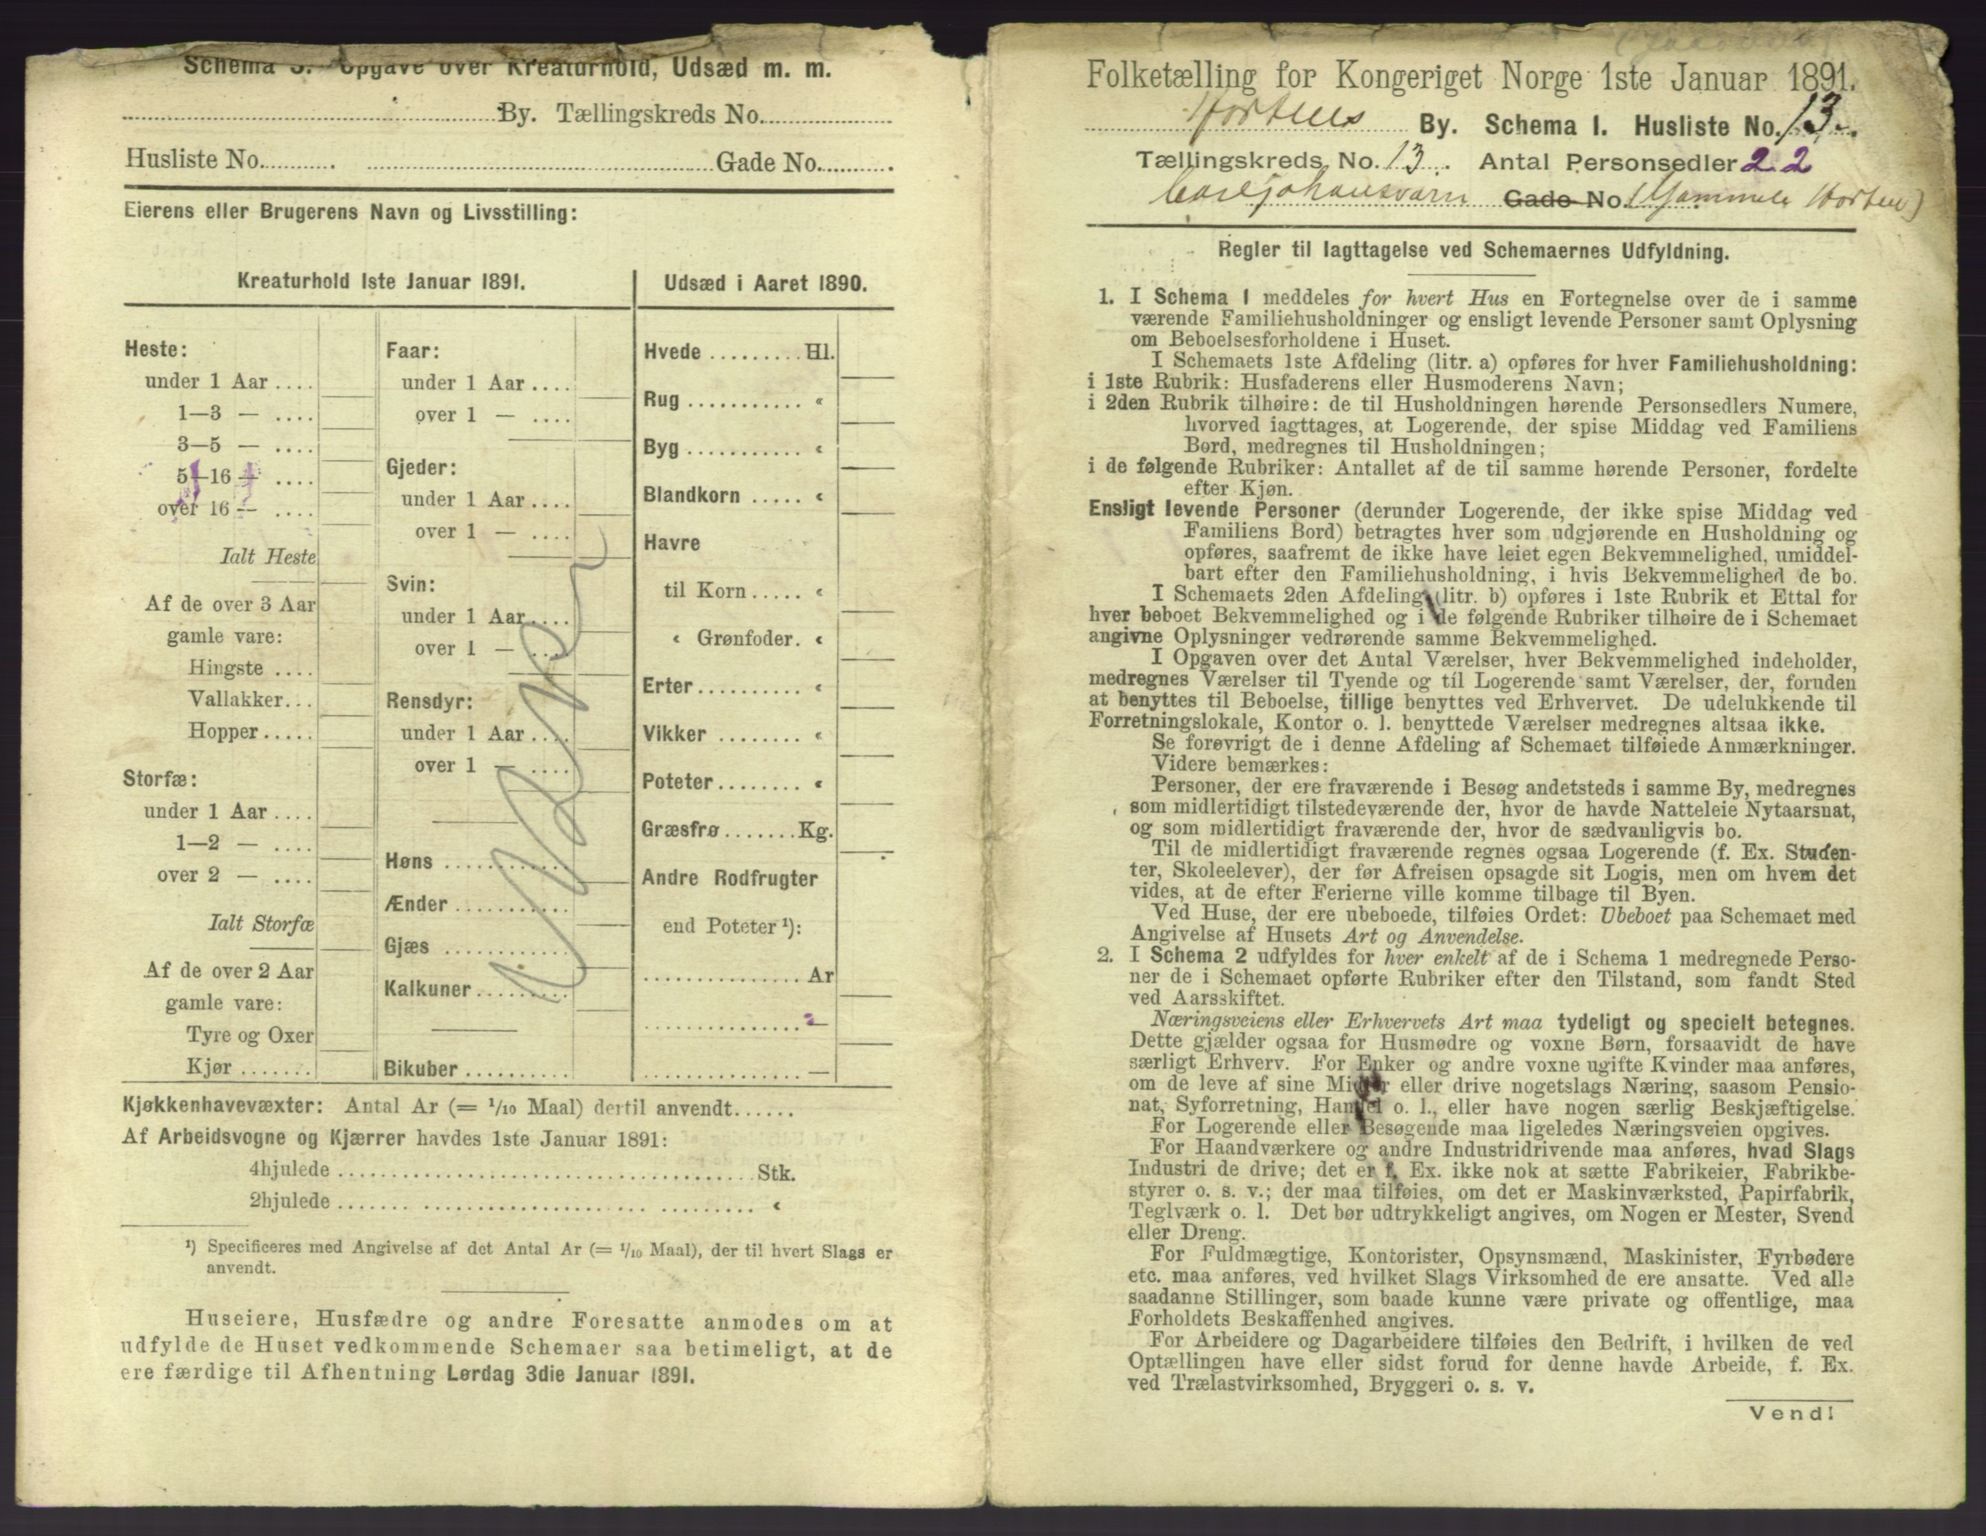 Schema 3. Opgave over Kreaturhold, Udsæd m. m.
By. Tællingskreds No.
Husliste No. Gade No.
Eierens eller Brugerens Navn og Livsstilling:
Kreaturhold 1ste Januar 1891.
Heste:
under 1 Aar ....
1—3 — ....
3—5 — ....
5—16 — ....
over 16 — ....
Ialt Heste
Af de over 3 Aar
gamle vare:
Hingste ....
Vallakker...
Hopper .....
Storfæ:
under 1 Aar ....
1—2 — ....
over 2 — ....
Ialt Storfæ
Af de over 2 Aar
gamle vare:
Tyre og Oxer
Kjør .......
Faar:
under 1 Aar ....
over 1 — ....
Gjeder:
under 1 Aar ....
over 1 — ....
Svin:
under 1 Aar ....
over 1 — ....
Rensdyr:
under 1 Aar ....
over 1 — ....
Høns ..........
Ænder ..........
Gjæs ..........
Kalkuner ........
Bikuber ..........
Udsæd i Aaret 1890.
Hvede ......... Hl.
Rug ........... «
Byg ........... «
Blandkorn ..... «
Havre
til Korn ..... «
« Grønfoder. «
Erter .......... «
Vikker ........ «
Poteter ........ «
Græsfrø ....... Kg.
Andre Rodfrugter
end Poteter ¹):
............... Ar
............... —
............... —
Kjøkkenhavevæxter: Antal Ar (= 1/10 Maal) dertil anvendt......
Af Arbeidsvogne og Kjærrer havdes 1ste Januar 1891:
4hjulede ........................................ Stk.
2hjulede ........................................ «
¹) Specificeres med Angivelse af det Antal Ar (= 1/10 Maal), der til hvert Slags er
anvendt.
Huseiere, Husfædre og andre Foresatte anmodes om at
udfylde de Huset vedkommende Schemaer saa betimeligt, at de
ere færdige til Afhentning Lørdag 3die Januar 1891.
Folketælling for Kongeriget Norge 1ste Januar 1891.
Hortens By. Schema 1. Husliste No. 13.
Tællingskreds No. 13. Antal Personsedler 22
Carljohansværn Gade No. (Gammele Horten)
Regler til Iagttagelse ved Schemaernes Udfyldning.
1. I Schema 1 meddeles for hvert Hus en Fortegnelse over de i samme
værende Familiehusholdninger og ensligt levende Personer samt Oplysning
om Beboelsesforholdene i Huset.
I Schemaets 1ste Afdeling (litr. a) opføres for hver Familiehusholdning:
i 1ste Rubrik: Husfaderens eller Husmoderens Navn;
i 2den Rubrik tilhøire: de til Husholdningen hørende Personsedlers Numere,
hvorved iagttages, at Logerende, der spise Middag ved Familiens
Bord, medregnes til Husholdningen;
i de følgende Rubriker: Antallet af de til samme hørende Personer, fordelte
efter Kjøn.
Ensligt levende Personer (derunder Logerende, der ikke spise Middag ved
Familiens Bord) betragtes hver som udgjørende en Husholdning og
opføres, saafremt de ikke have leiet egen Bekvemmelighed, umiddel-
bart efter den Familiehusholdning, i hvis Bekvemmelighed de bo.
I Schemaets 2den Afdeling (litr. b) opføres i 1ste Rubrik et Ettal for
hver beboet Bekvemmelighed og i de følgende Rubriker tilhøire de i Schemaet
angivne Oplysninger vedrørende samme Bekvemmelighed.
I Opgaven over det Antal Værelser, hver Bekvemmelighed indeholder,
medregnes Værelser til Tyende og til Logerende samt Værelser, der, foruden
at benyttes til Beboelse, tillige benyttes ved Erhvervet. De udelukkende til
Forretningslokale, Kontor o. l. benyttede Værelser medregnes altsaa ikke.
Se forøvrigt de i denne Afdeling af Schemaet tilføiede Anmærkninger.
Videre bemærkes:
Personer, der ere fraværende i Besøg andetsteds i samme By, medregnes
som midlertidigt tilstedeværende der, hvor de havde Natteleie Nytaarsnat,
og som midlertidigt fraværende der, hvor de sædvanligvis bo.
Til de midlertidigt fraværende regnes ogsaa Logerende (f. Ex. Studen-
ter, Skoleelever), der før Afreisen opsagde sit Logis, men om hvem det
vides, at de efter Ferierne ville komme tilbage til Byen.
Ved Huse, der ere ubeboede, tilføies Ordet: Ubeboet paa Schemaet med
Angivelse af Husets Art og Anvendelse.
2. I Schema 2 udfyldes for hver enkelt af de i Schema 1 medregnede Perso-
ner de i Schemaet opførte Rubriker efter den Tilstand, som fandt Sted
ved Aarsskiftet.
Næringsveiens eller Erhvervets Art maa tydeligt og specielt betegnes.
Dette gjælder ogsaa for Husmødre og voxne Børn, forsaavidt de have
særligt Erhverv. For Enker og andre voxne ugifte Kvinder maa anføres,
om de leve af sine Midler eller drive nogetslags Næring, saasom Pensio-
nat, Syforretning, Handel o. l., eller have nogen særlig Beskjæftigelse.
For Logerende eller Besøgende maa ligeledes Næringsveien opgives.
For Haandværkere og andre Industridrivende maa anføres, hvad Slags
Industri de drive; det er f. Ex. ikke nok at sætte Fabrikeier, Fabrikbe-
styrer o. s. v.; der maa tilføies, om det er Maskinværksted, Papirfabrik,
Teglværk o. l. Det bør udtrykkeligt angives, om Nogen er Mester, Svend
eller Dreng.
For Fuldmægtige, Kontorister, Opsynsmænd, Maskinister, Fyrbødere
etc. maa anføres, ved hvilket Slags Virksomhed de ere ansatte. Ved alle
saadanne Stillinger, som baade kunne være private og offentlige, maa
Forholdets Beskaffenhed angives.
For Arbeidere og Dagarbeidere tilføies den Bedrift, i hvilken de ved
Optællingen have eller sidst forud for denne havde Arbeide, f. Ex.
ved Trælastvirksomhed, Bryggeri o. s. v.
Vend!